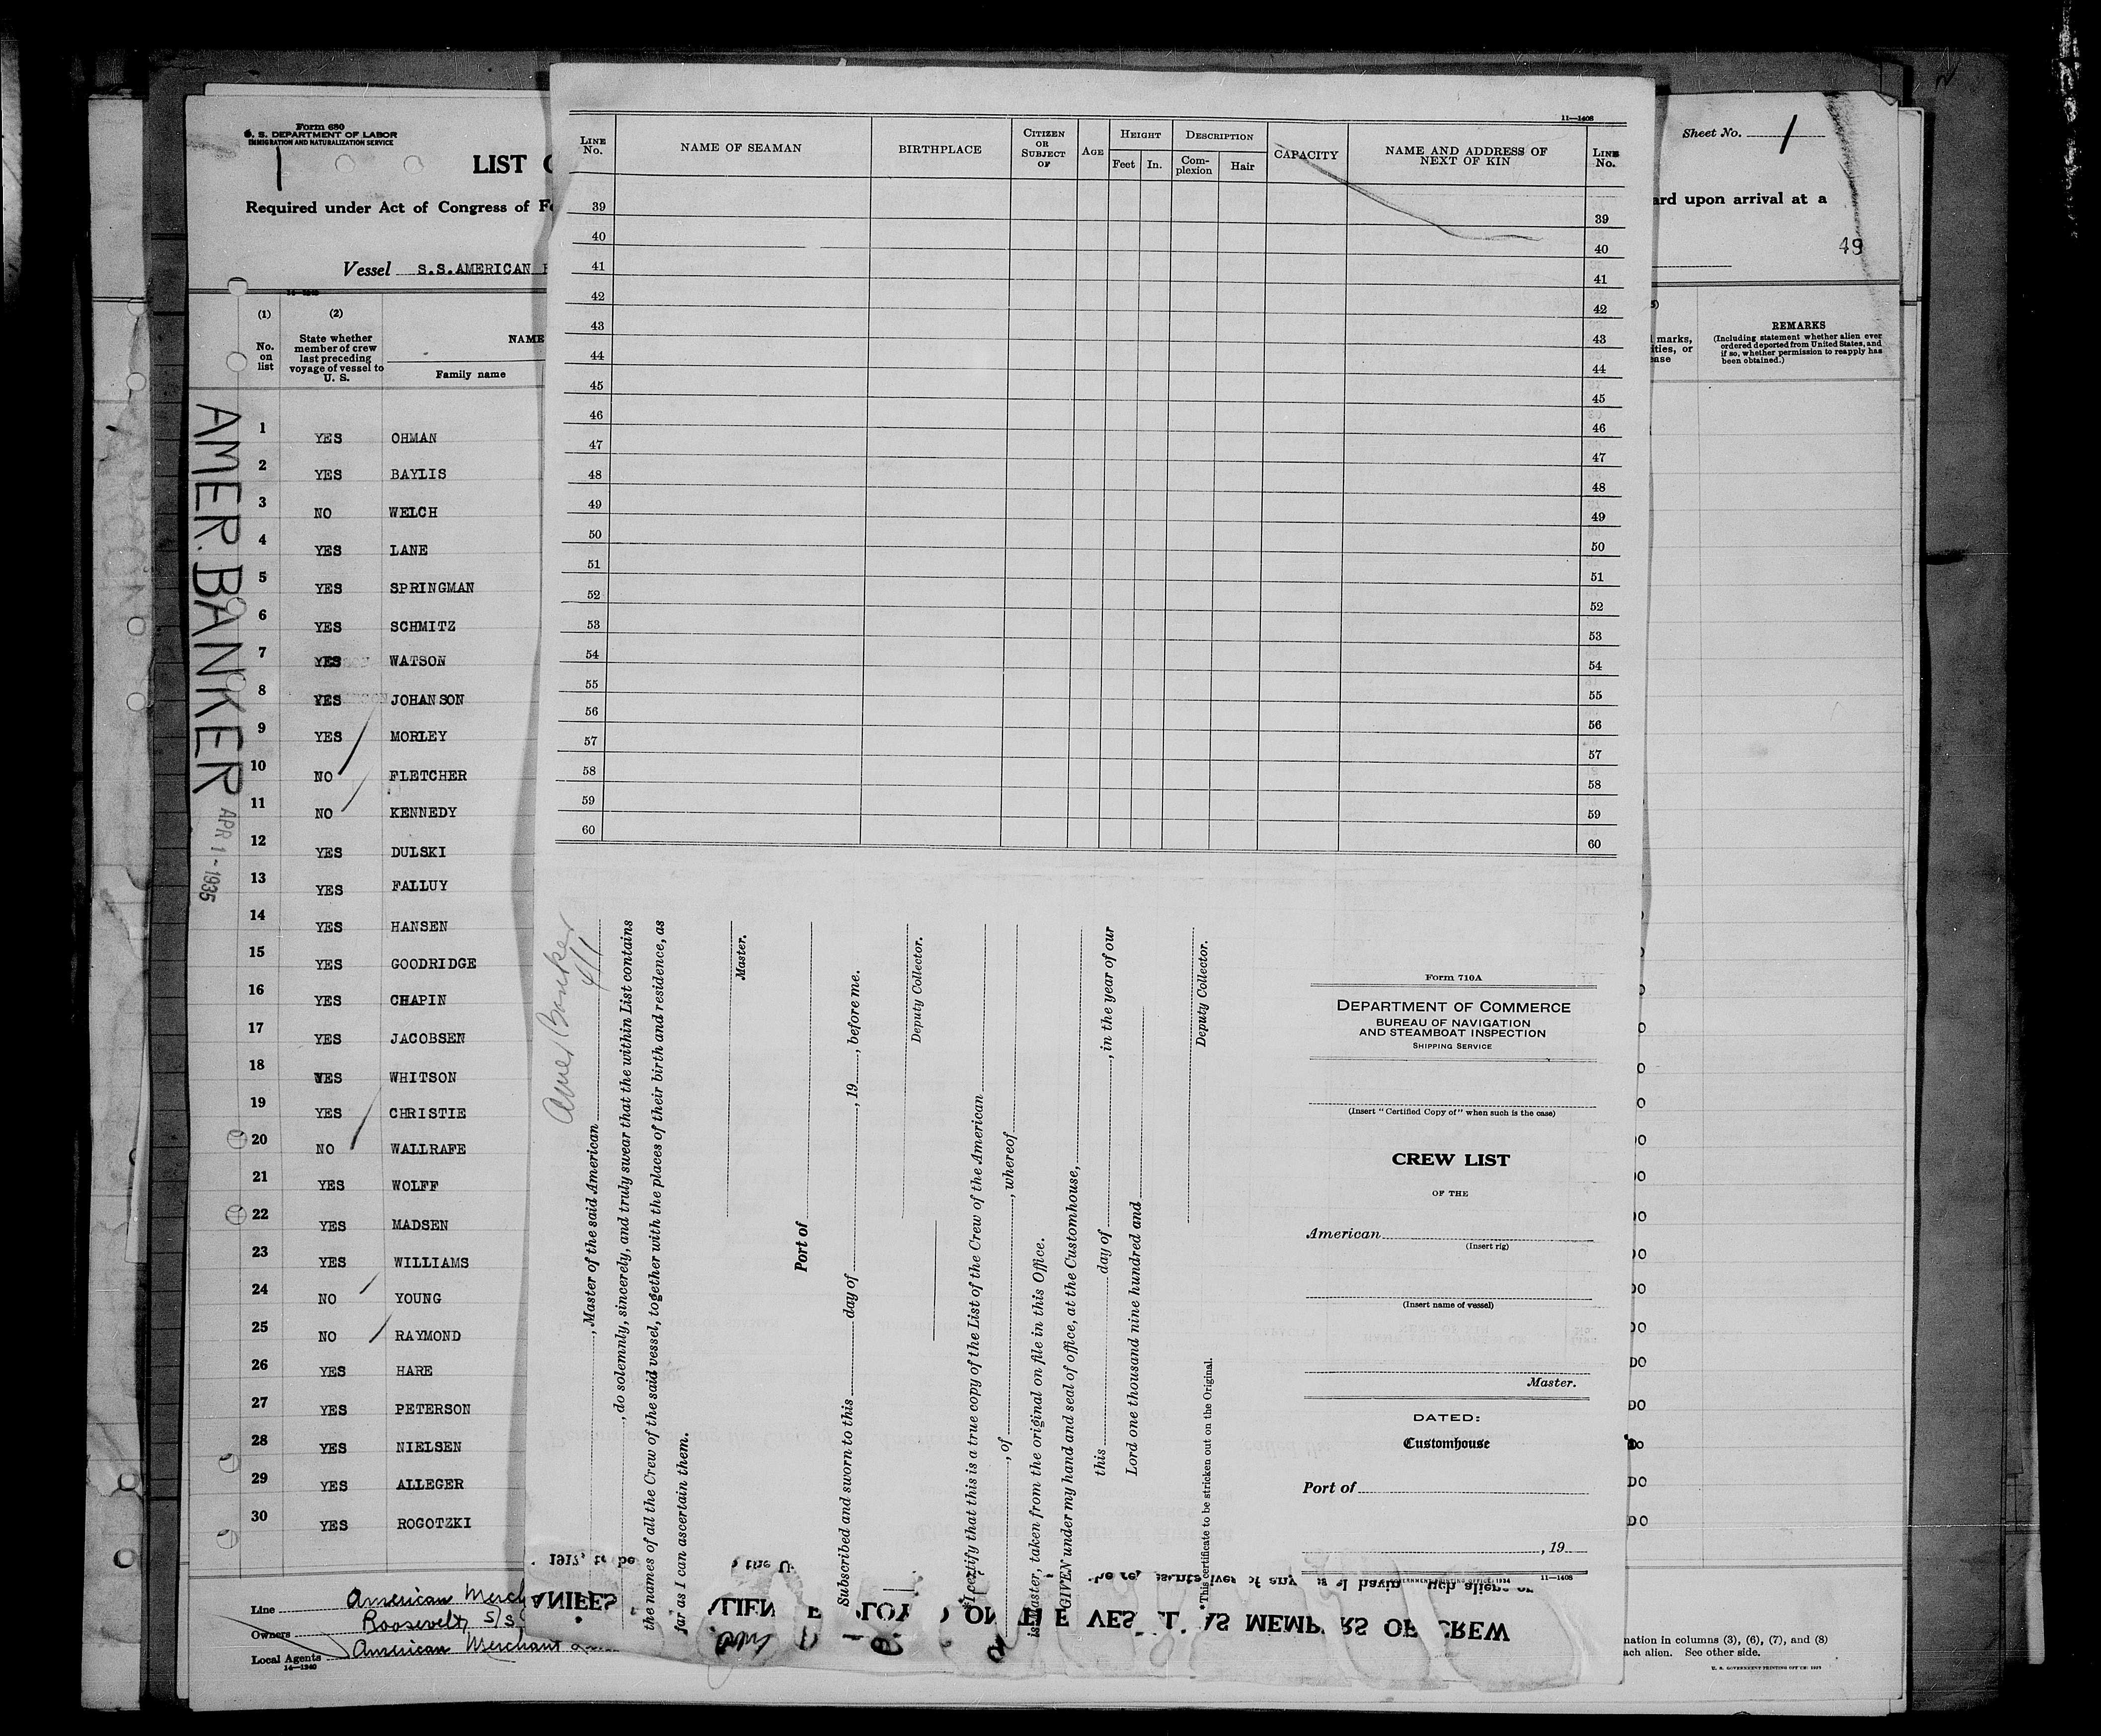 Form 680
U. S. DEPARTMENT OF LABOR
IMMIGRATION AND NATURALIZATION SERVICE
1
LIST
Required under Act of Congress of
Vessel S.S.AMERICAN
(1)
No. on list
(2)
State whether member of crew last preceding voyage of vessel to U. S.
NAME
Family name
1 YES OHMAN
2 YES BAYLIS
3 NO WELCH
4 YES LANE
5 YES SPRINGMAN
6 YES SCHMITZ
7 YES WATSON
8 YES JOHANSON
9 YES MORLEY
10 NO FLETCHER
11 NO KENNEDY
12 YES DULSKI
13 YES FALLUY
14 YES HANSEN
15 YES GOODRIDGE
16 YES CHAPIN
17 YES JACOBSEN
18 YES WHITSON
19 YES CHRISTIE
20 NO WALLRAFE
21 YES WOLFF
22 YES MADSEN
23 YES WILLIAMS
24 NO YOUNG
25 NO RAYMOND
26 YES HARE
27 YES PETERSON
28 YES NIELSEN
29 YES ALLEGER
30 YES ROGOTZKI
AMER. BANKER
APR 1 - 1935
Line American Merch
Owners Roosevelt S/S
Local Agents American Merchant
14—1240
11—1408
LINE No.
NAME OF SEAMAN
BIRTHPLACE
CITIZEN OR SUBJECT OF
AGE
HEIGHT
Feet
In.
DESCRIPTION
Complexion
Hair
CAPACITY
NAME AND ADDRESS OF NEXT OF KIN
LINE No.
39 39
40 40
41 41
42 42
43 43
44 44
45 45
46 46
47 47
48 48
49 49
50 50
51 51
52 52
53 53
54 54
55 55
56 56
57 57
58 58
59 59
60 60
Amer Banker
4/1
, Master of the said American
, do solemnly, sincerely, and truly swear that the within List contains
the names of all the Crew of the said vessel, together with the places of their birth and residence, as
far as I can ascertain them.
Master.
Port of
Subscribed and sworn to this day of , 19 , before me.
Deputy Collector.
*I certify that this is a true copy of the List of the Crew of the American
, of , whereof
is Master, taken from the original on file in this Office.
GIVEN under my hand and seal of office, at the Customhouse,
this day of , in the year of our
Lord one thousand nine hundred and
Deputy Collector.
*This certificate to be stricken out on the Original.
Form 710A
DEPARTMENT OF COMMERCE
BUREAU OF NAVIGATION
AND STEAMBOAT INSPECTION
SHIPPING SERVICE
(Insert "Certified Copy of" when such is the case)
CREW LIST
OF THE
American
(Insert rig)
(Insert name of vessel)
Master.
DATED:
Customhouse
Port of
, 19
11—1408
1917, to be the
ON THE VESSEL AS MEMBERS OF CREW
Sheet No. 1
ard upon arrival at a
49
marks,
ities, or
ease
REMARKS
(Including statement whether alien ever ordered deported from United States, and if so, whether permission to reapply has been obtained.)
DO
DO
DO
DO
DO
mation in columns (3), (6), (7), and (8)
ach alien. See other side.
U. S. GOVERNMENT PRINTING OFFICE